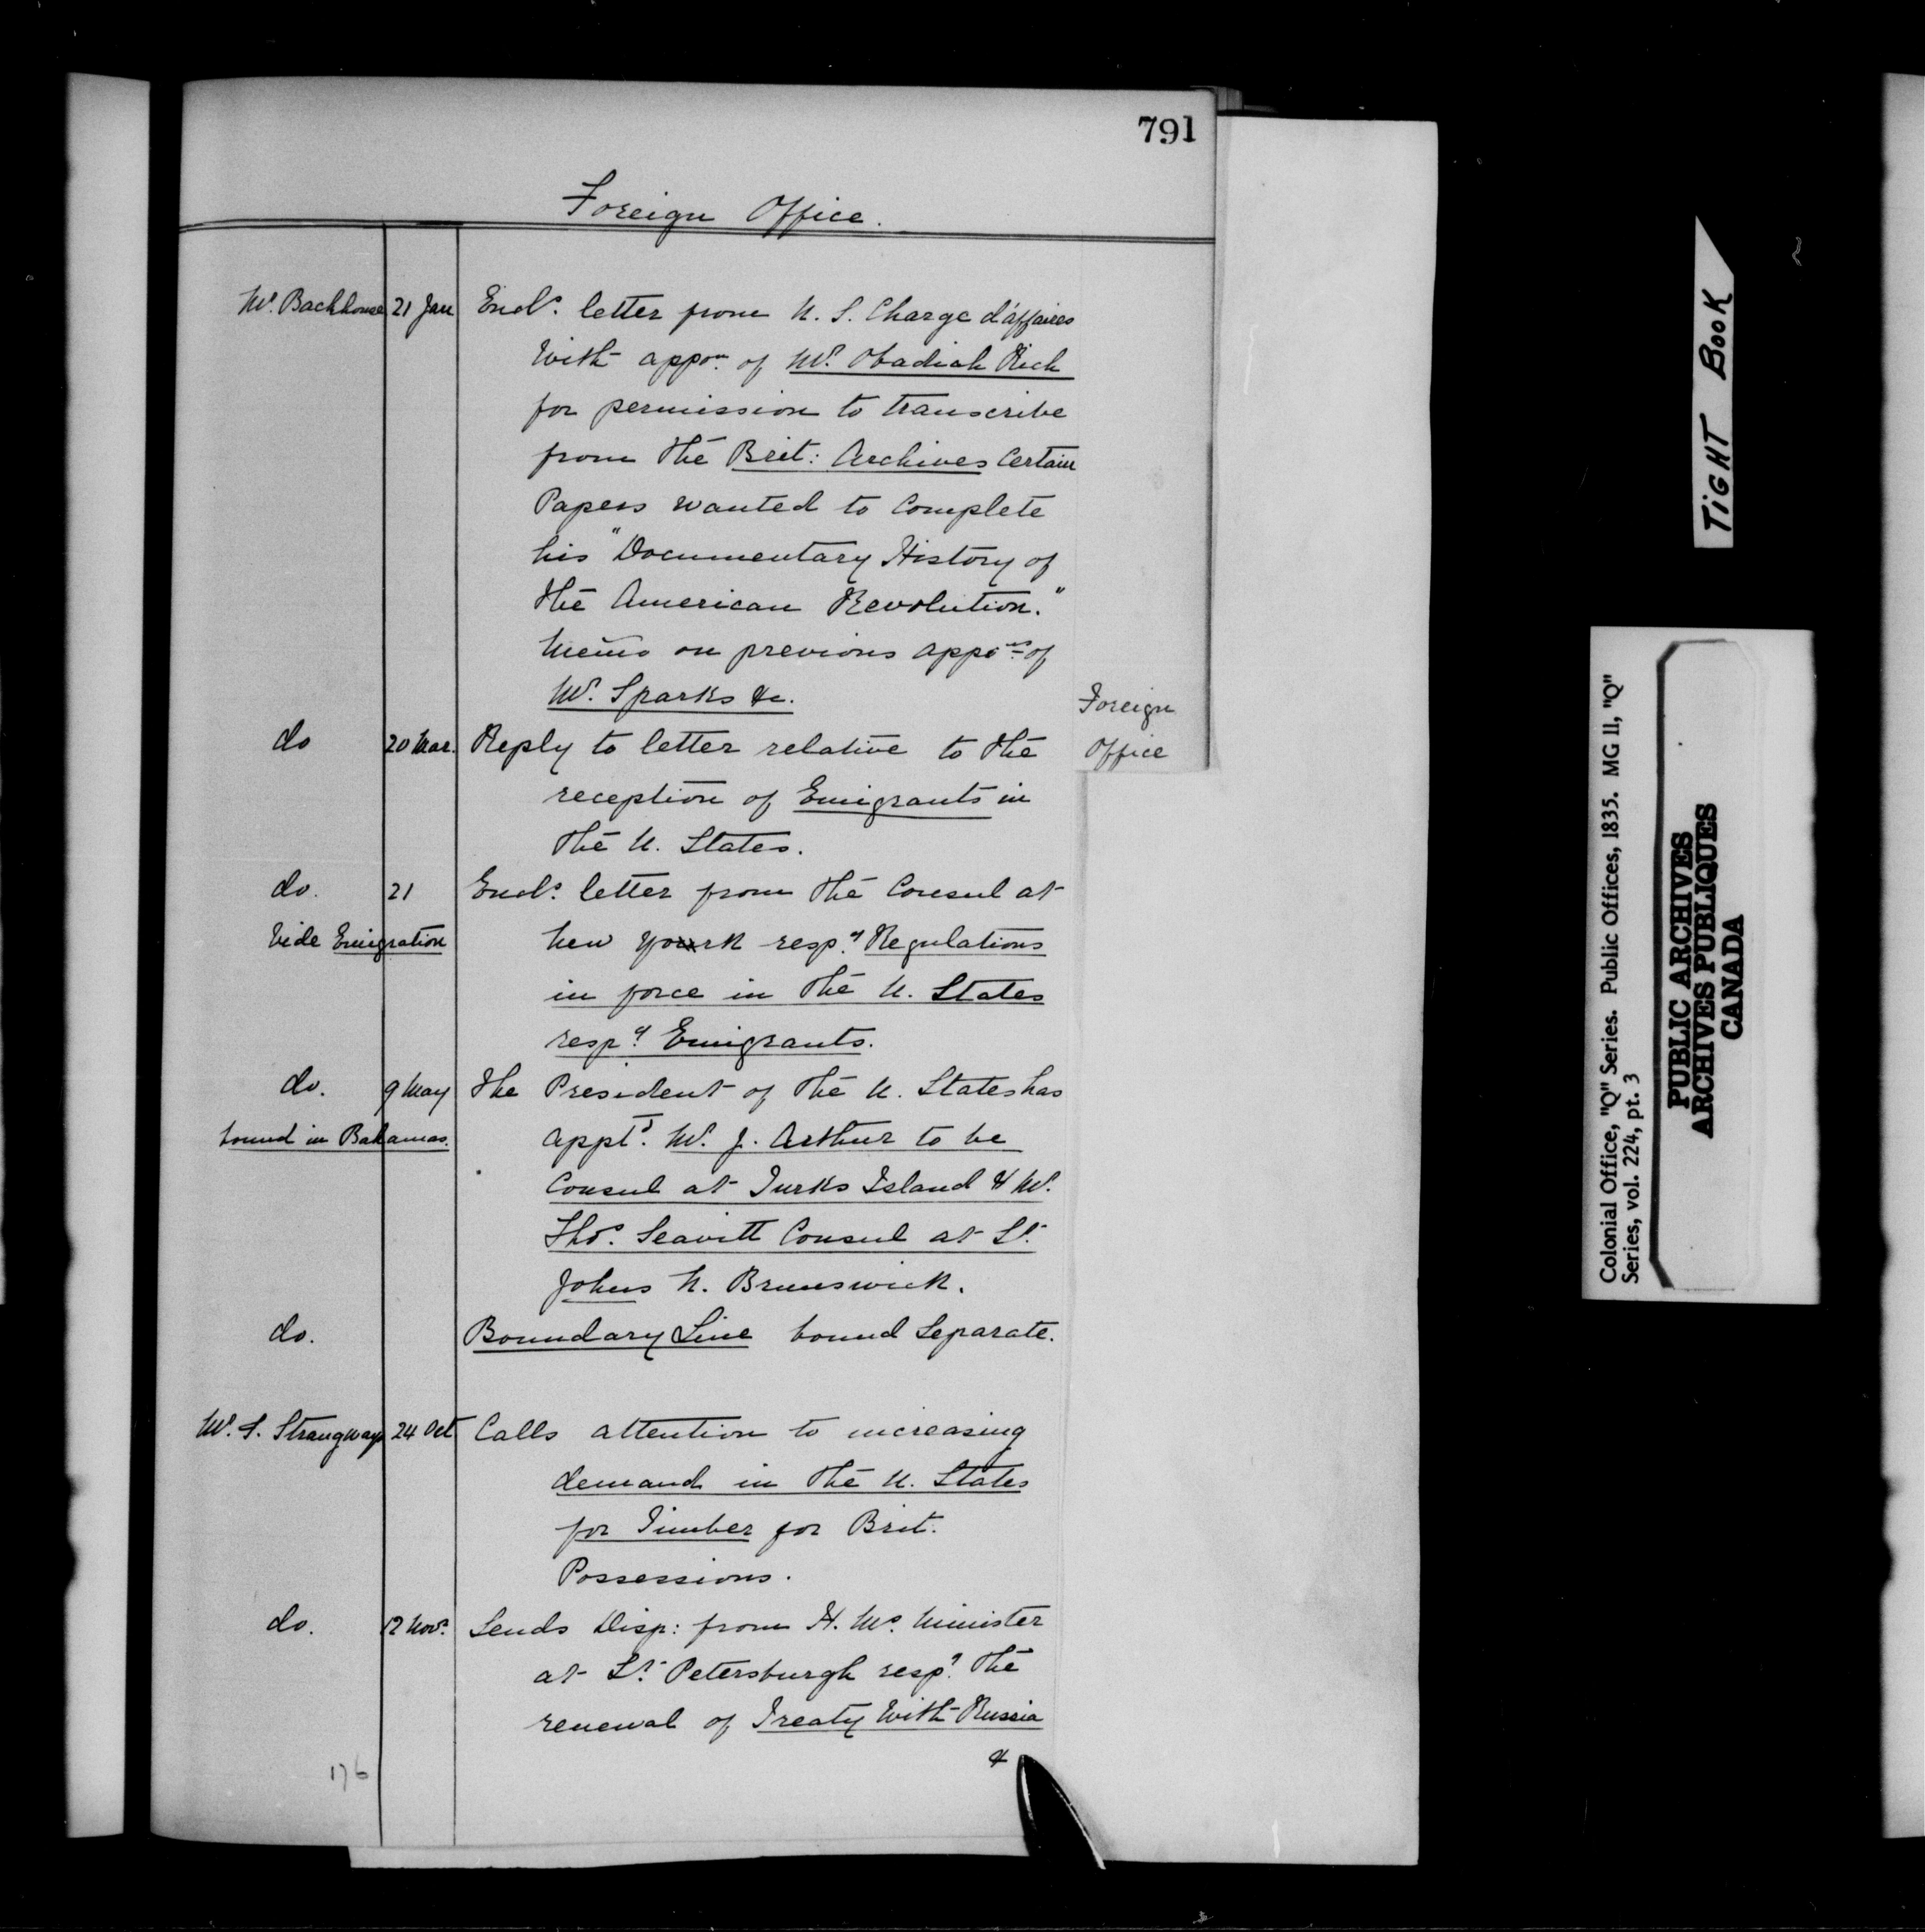 791
Foreign Office.
Mr. Backhouse 21 Jan Encls. letter from U. S. Charge d'affaires
With appon. of Mr. Obadiah Rich
for permission to transcribe
from the Brit: Archives Certain
Papers wanted to Complete
his "Documentary History of
the American Revolution."
Memo on previous appons of
Mr. Sparks &c.
do 20 Mar. Reply to letter relative to the
reception of Emigrants in
the U. States.
Foreign
Office
do. 21 Encls. letter from the Consul at
Vide Emigration New York respg. Regulations
in force in the U. States
respg. Emigrants.
do. 9 May The President of the U. States has
bound in Bahamas. apptd. Mr. J. Arthur to be
Consul at Turks Island & Mr.
Thos. Leavitt Consul at St.
Johns N. Brunswick.
do. Boundary Line bound Separate.
Mr. S. Strangways 24 Oct Calls attention to increasing
demand in the U. States
for Timber for Brit.
Possessions.
do. 12 Novr. Sends Disp: from H. Ms. Minister
at St. Petersburgh respg. the
renewal of Treaty With Russia
&
176
TIGHT BOOK
Colonial Office, "Q" Series. Public Offices, 1835. MG 11, "Q"
Series, vol. 224, pt. 3
PUBLIC ARCHIVES
ARCHIVES PUBLIQUES
CANADA